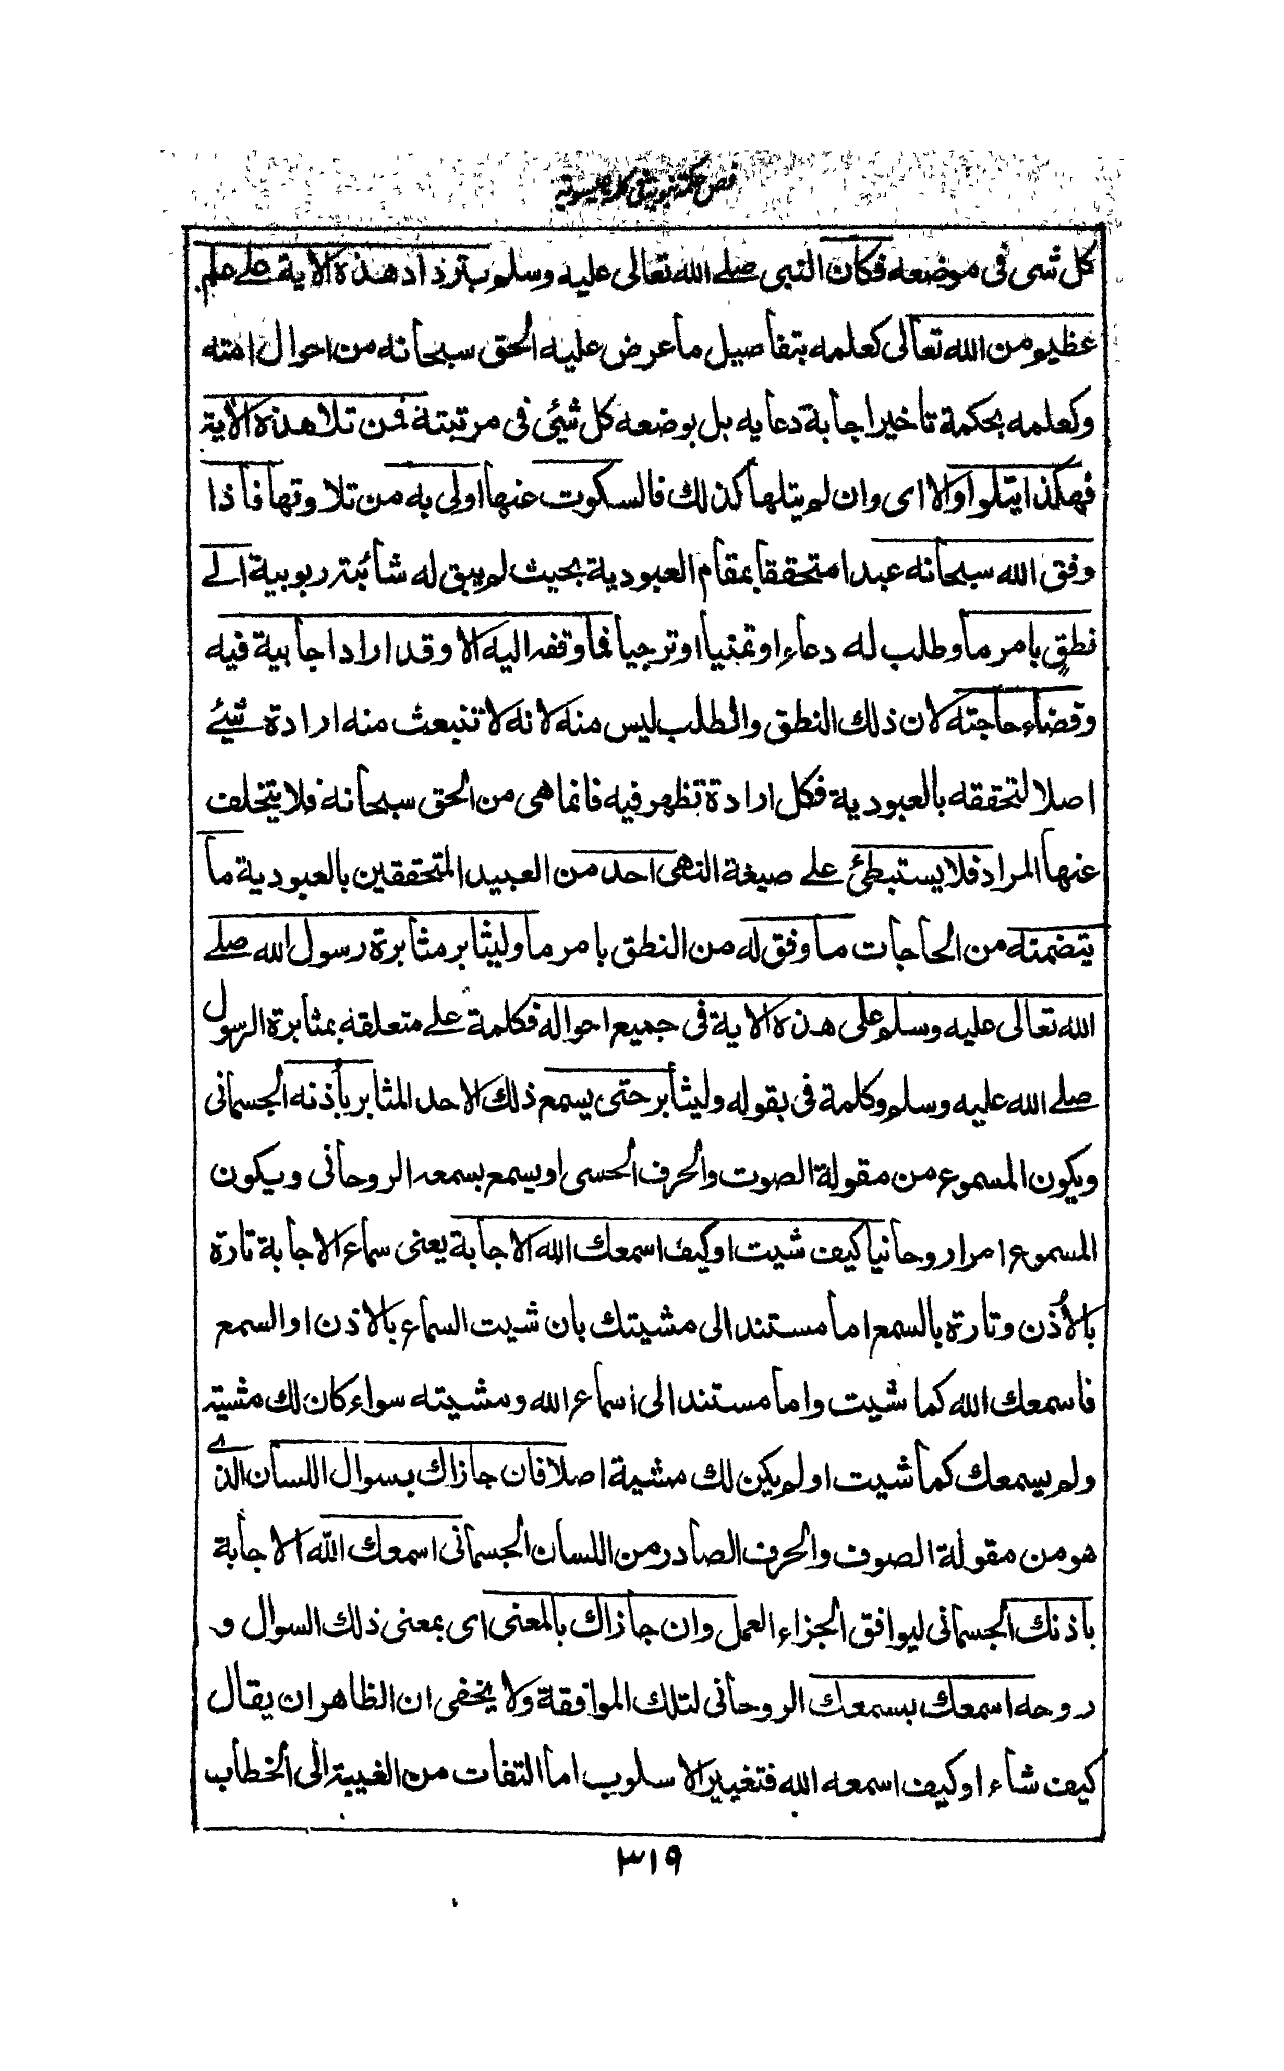 فص حكمة نبوية في كلمة عيسوية
كل شى فى موضعه فكان النبى صلے الله تعالى عليه وسلم بترداد هذه الاية علے علم
عظيم من الله تعالى كعلمه بتفاصيل ما عرض عليه الحق سبحانه من احوال امته
وكعلمه بحكمة تاخير اجابة دعايه بل بوضعه كل شئى فى مرتبته فمن تلا هذه الاية
فهكذا يتلوا والا اى وان لم يتلها كذلك فالسكوت عنها اولى به من تلاوتها فاذا
وفق الله سبحانه عبدا متحققا بمقام العبودية بحيث لم يبق له شائبة ربوبية الے
نطق بامر ما وطلب له دعاء او تمنيا او ترجيا فما وقفه اليه الا وقد اراد اجابية فيه
وقضاء حاجته لان ذلك النطق والطلب ليس منه لانه لا تنبعث منه ارادة شيئے
اصلا لتحققه بالعبودية فكل ارادة تظهر فيه فانما هى من الحق سبحانه فلا يتخلف
عنها المراد فلا يستبطئ علے صيغة النهى احد من العبيد المتحققين بالعبودية ما
يتضمنه من الحاجات ما وفق له من النطق بامر ما وليثابر مثابرة رسول الله صلے
الله تعالى عليه وسلم على هذه الاية فى جميع احواله فكلمة علے متعلقه بمثابرة الرسول
صلے الله عليه وسلم وكلمة فى بقوله وليثابر حتى يسمع ذلك الاحد المثابر باذنه الجسمانى
ويكون المسموع من مقولة الصوت والحرف الحسى او يسمع بسمعه الروحانى ويكون
المسموع امرا روحانيا كيف شيت او كيف اسمعك الله الاجابة يعنى سماع الاجابة تارة
بالأذن وتارة بالسمع اما مستند الى مشيتك بان شيت السماع بالاذن او السمع
فاسمعك الله كما شيت واما مستند الى اسماع الله ومشيته سواء كان لك مشية
ولم يسمعك كما شيت او لم يكن لك مشية اصلا فان جازاك بسوال اللسان الذے
هو من مقولة الصوف والحرف الصادر من اللسان الجسمانى اسمعك الله الاجابة
باذنك الجسمانى ليوافق الجزاء العمل وان جازاك بالمعنى اى بمعنى ذلك السوال و
روحه اسمعك بسمعك الروحانى لتلك الموافقة ولا يخفى ان الظاهر ان يقال
كيف شاء او كيف اسمعه الله فتغيير الاسلوب اما التفات من الغيبة الى الخطاب
٣١٩